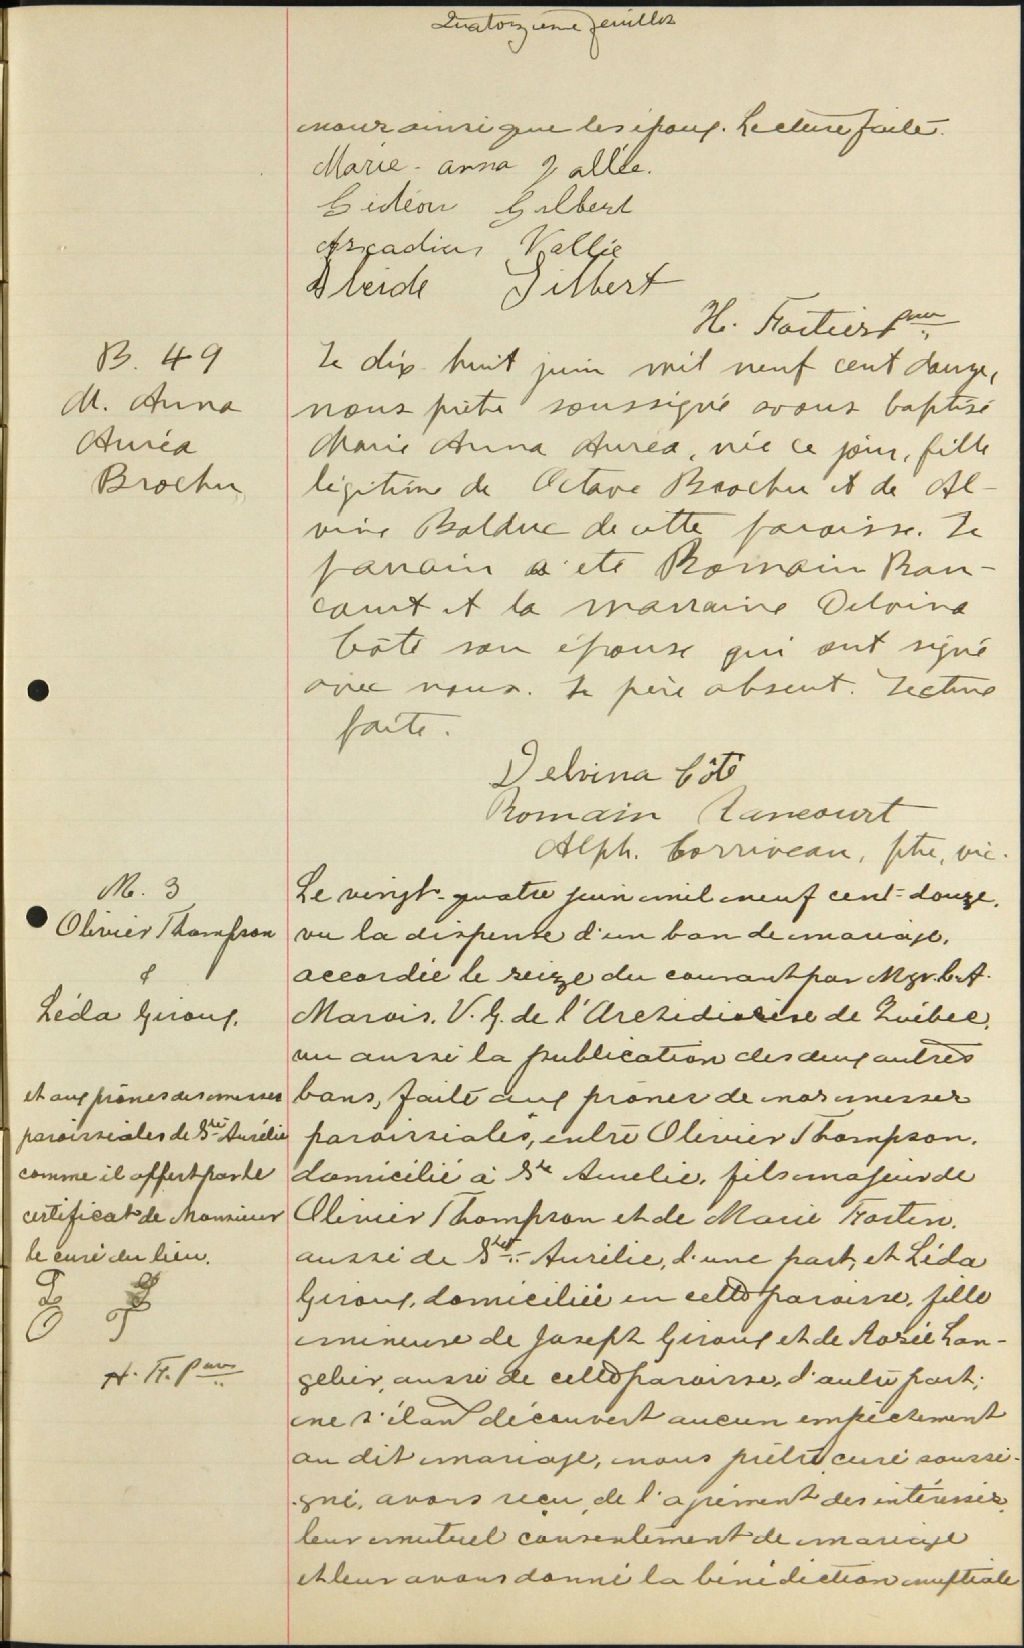 Quatorzieme feuillet
nous ainsi que les époux. Lecture faite.
Marie-anna Vallée.
Gédéon Gilbert
Arcadius Vallée
Alcide Gilbert
H. Fortier ptre
B. 49
M. Anna
Auréa
Brochu
Le dix-huit juin mil neuf cent douze,
nous prêtre soussigné avons baptisé
Marie Anna Auréa, née ce jour, fille
légitime de Octave Brochu et de Al-
vine Bolduc de cette paroisse. Le
parrain a été Romain Ran-
court et la marraine Delvina
Côté son épouse qui ont signé
avec nous. Le père absent. Lecture
faite.
Delvina Côté
Romain Rancourt
Alph. Corriveau, ptre, vic.
M. 3
Olivier Thompson
&
Léda Giroux.
Le vingt-quatre juin mil neuf cent-douze,
vu la dispense d'un ban de mariage,
accordée le seize du courant par Mgr. C. A.
Marois, V. G. de l'Archidiocèse de Québec,
vu aussi la publication des deux autres
bans, faite aux prônes de nos messes
paroissiales, entre Olivier Thompson,
domicilié à Ste Aurelie, fils majeur de
Olivier Thompson et de Marie Fortin,
aussi de Ste Aurélie, d'une part, et Léda
Giroux, domiciliée en cette paroisse, fille
mineure de Joseph Giroux et de Rosée Lan-
gelier, aussi de cette paroisse, d'autre part;
ne s'étant découvert aucun empêchement
au dit mariage, nous prêtre curé soussi-
gné, avons reçu, de l'agrément des intéressés,
leur mutuel consentement de mariage
et leur avons donné la bénédiction nuptiale
et aux prônes des messes
paroissiales de Ste Aurélie
comme il appert par le
certificat de Monsieur
le curé du lieu.
H. F. ptre